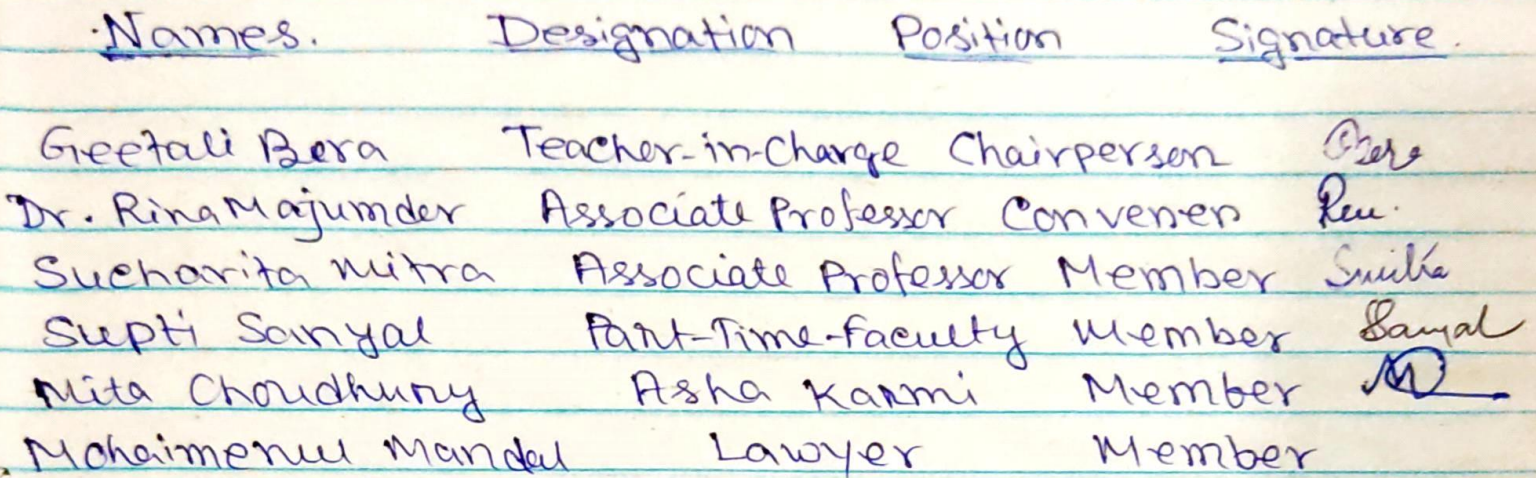 Names. Designation Position Signature.
Geetali Bera Teacher-in-Charge Chairperson
Dr. Rina Majumder Associate Professor Convener
Sucharita Mitra Associate Professor Member
Supti Sanyal Part-Time-Faculty Member Sanyal
Mita Choudhury Asha Karmi Member
Mohaimenul Mandal Lawyer Member